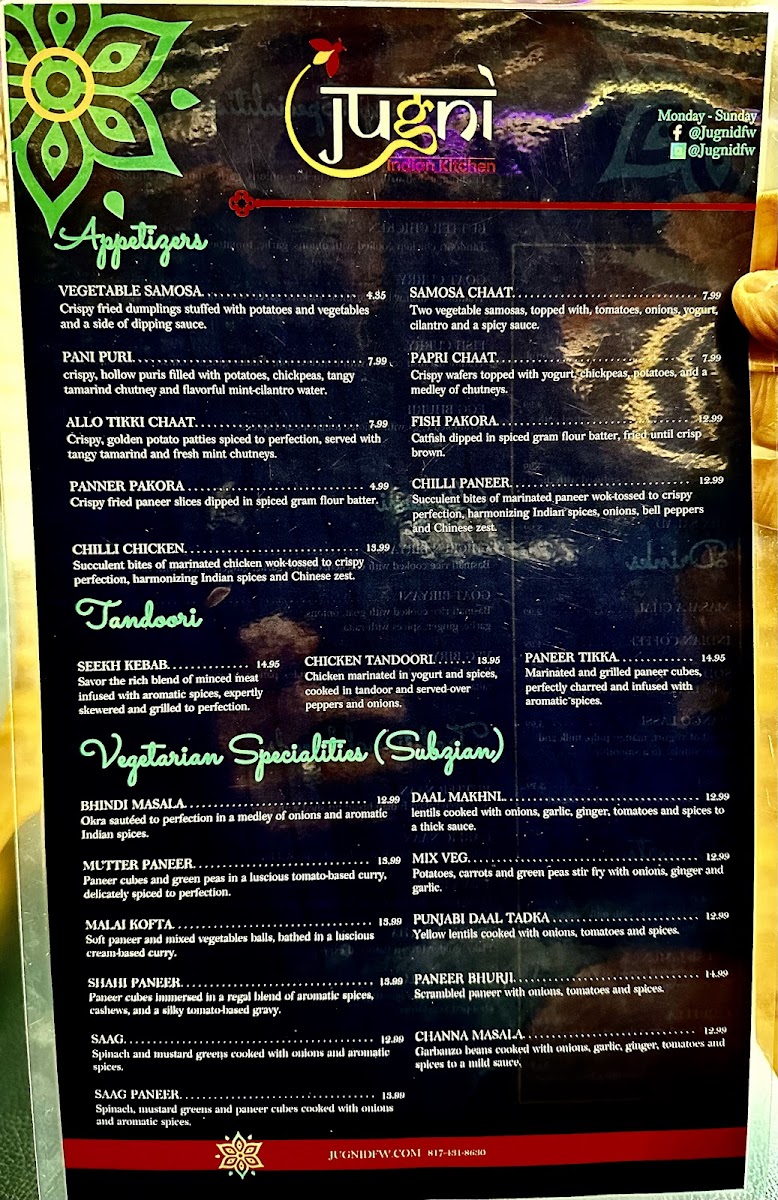 jugni
Indian Kitchen
Monday - Sunday
@Jugnidfw
@Jugnidfw
Appetizers
VEGETABLE SAMOSA 4.35
Crispy fried dumplings stuffed with potatoes and vegetables
and a side of dipping sauce.
PANI PURI 7.99
crispy, hollow puris filled with potatoes, chickpeas, tangy
tamarind chutney and flavorful mint-cilantro water.
ALLO TIKKI CHAAT 7.99
Crispy, golden potato patties spiced to perfection, served with
tangy tamarind and fresh mint chutneys.
PANNER PAKORA 4.99
Crispy fried paneer slices dipped in spiced gram flour batter.
CHILLI CHICKEN 13.99
Succulent bites of marinated chicken wok-tossed to crispy
perfection, harmonizing Indian spices and Chinese zest.
SAMOSA CHAAT 7.99
Two vegetable samosas, topped with, tomatoes, onions, yogurt,
cilantro and a spicy sauce.
PAPRI CHAAT 7.99
Crispy wafers topped with yogurt, chickpeas, potatoes, and a
medley of chutneys.
FISH PAKORA 12.99
Catfish dipped in spiced gram flour batter, fried until crisp
brown.
CHILLI PANEER 12.99
Succulent bites of marinated paneer wok-tossed to crispy
perfection, harmonizing Indian spices, onions, bell peppers
and Chinese zest.
Tandoori
SEEKH KEBAB 14.95
Savor the rich blend of minced meat
infused with aromatic spices, expertly
skewered and grilled to perfection.
CHICKEN TANDOORI 13.95
Chicken marinated in yogurt and spices,
cooked in tandoor and served over
peppers and onions.
PANEER TIKKA 14.95
Marinated and grilled paneer cubes,
perfectly charred and infused with
aromatic spices.
Vegetarian Specialities (Subzian)
BHINDI MASALA 12.99
Okra sautéed to perfection in a medley of onions and aromatic
Indian spices.
MUTTER PANEER 13.99
Paneer cubes and green peas in a luscious tomato-based curry,
delicately spiced to perfection.
MALAI KOFTA 13.99
Soft paneer and mixed vegetables balls, bathed in a luscious
cream-based curry.
SHAHI PANEER 13.99
Paneer cubes immersed in a regal blend of aromatic spices,
cashews, and a silky tomato-based gravy.
SAAG 12.99
Spinach and mustard greens cooked with onions and aromatic
spices.
SAAG PANEER 13.99
Spinach, mustard greens and paneer cubes cooked with onions
and aromatic spices.
DAAL MAKHNI 12.99
lentils cooked with onions, garlic, ginger, tomatoes and spices to
a thick sauce.
MIX VEG 12.99
Potatoes, carrots and green peas stir fry with onions, ginger and
garlic.
PUNJABI DAAL TADKA 12.99
Yellow lentils cooked with onions, tomatoes and spices.
PANEER BHURJI 14.99
Scrambled paneer with onions, tomatoes and spices.
CHANNA MASALA 12.99
Garbanzo beans cooked with onions, garlic, ginger, tomatoes and
spices to a mild sauce.
JUGNIDFW.COM 817-431-8630